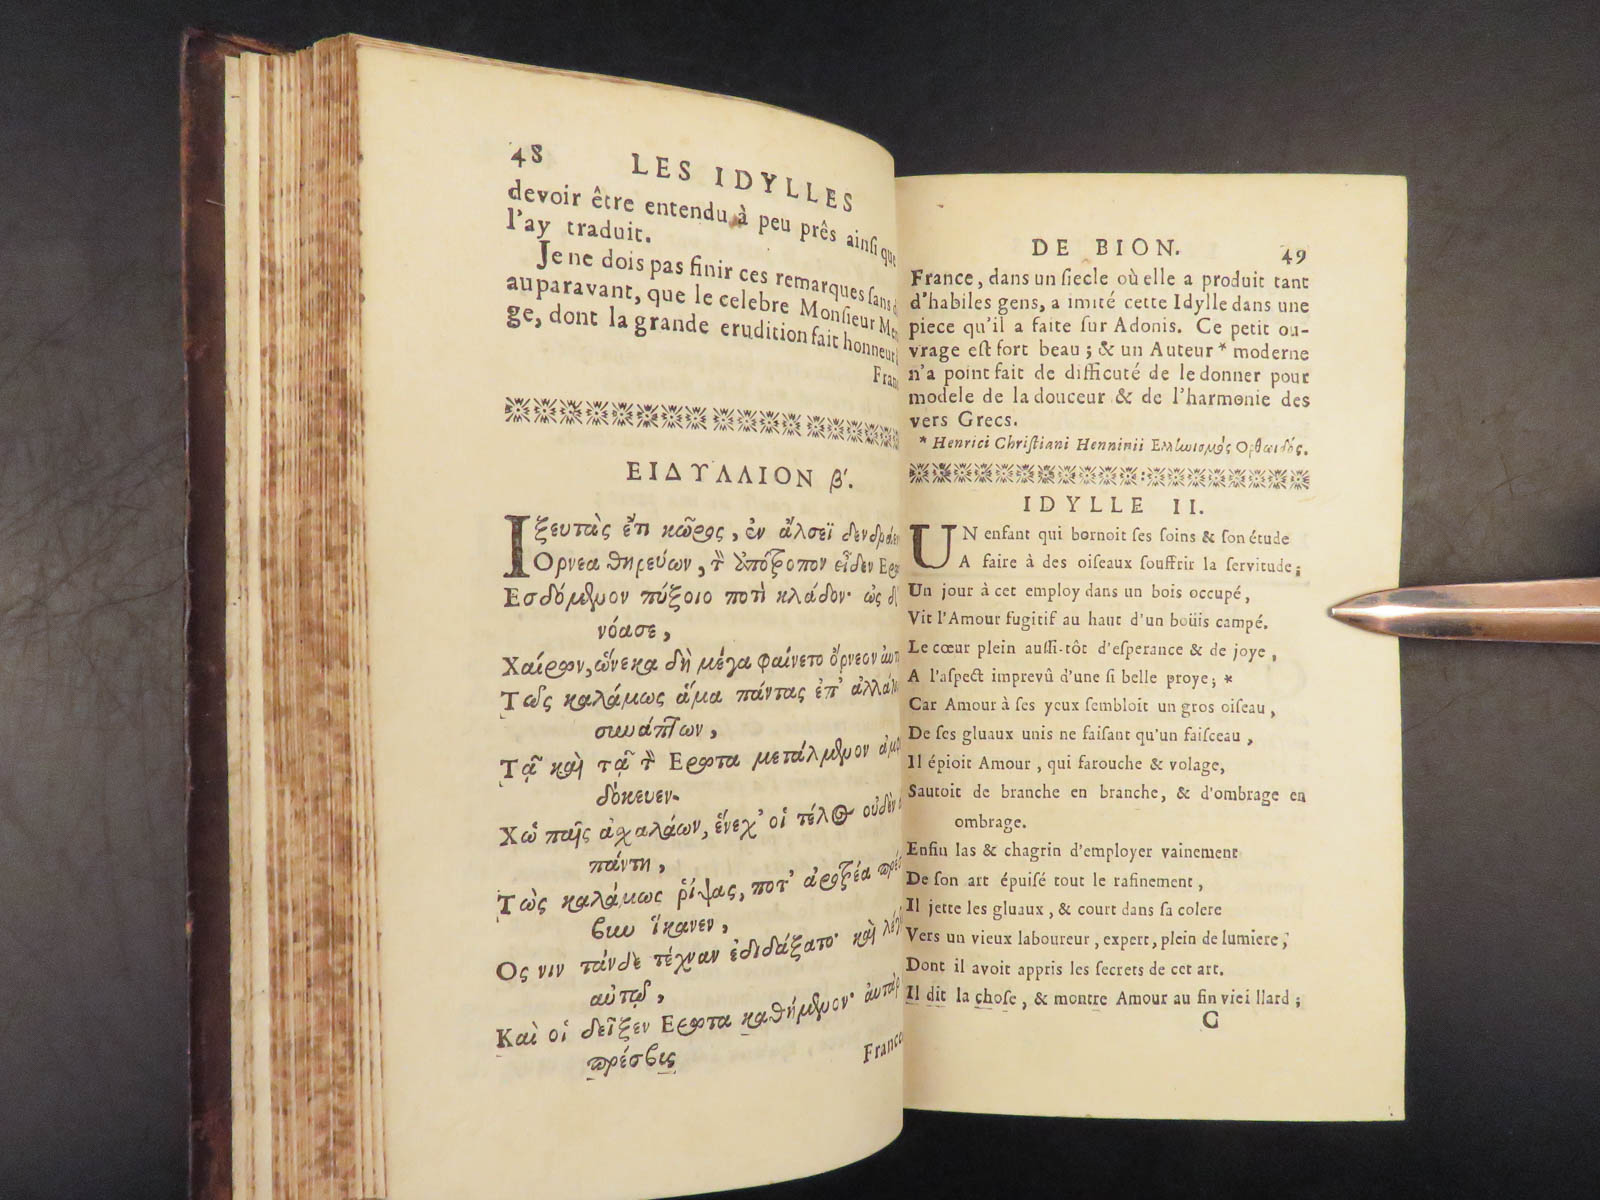 48 LES IDYLLES
devoir être entendu à peu prês ainsi que
l'ay traduit.
Je ne dois pas finir ces remarques sans
auparavant, que le celebre Monsieur
ge, dont la grande erudition fait honneur
ΕΙΔΥΛΛΙΟΝ β'.
Ιξευτὰς ἔτι κῶρος, ἐν ἄλσεϊ
Ορνεα θηρεύων, τὸν ὑπόξοπον εἶδεν
Εσδόμενον πύξοιο ποτὶ κλάδον· ὡς δ'
νόασε,
Χαίρων, ὥνεκα δὴ μέγα φαίνετο ὄρνεον
Τὼς καλάμως ἅμα πάντας ἐπ'
συνάπτων,
Τᾷ καὶ τᾷ τὸν Ερωτα μετάλμενον
δόκευεν.
Χὠ παῖς ἀχαλάων, ἕνεχ' οἱ τέλος οὐδὲν
πάντη,
Τὼς καλάμως ῥίψας, ποτ' ἀροτρέα
βυν ἵκανεν,
Ος νιν τάνδε τέχναν ἐδιδάξατο· καὶ
αὐτῷ,
Καὶ οἱ δεῖξεν Ερωτα καθήμενον· αὐτὰρ
πρέσβις
France
DE BION. 49
France, dans un siecle où elle a produit tant
d'habiles gens, a imité cette Idylle dans une
piece qu'il a faite sur Adonis. Ce petit ou-
vrage est fort beau; & un Auteur * moderne
n'a point fait de difficuté de le donner pour
modele de la douceur & de l'harmonie des
vers Grecs.
* Henrici Christiani Henninii Ελληνισμὸς Ορθωιδός.
IDYLLE II.
UN enfant qui bornoit ses soins & son étude
A faire à des oiseaux souffrir la servitude;
Un jour à cet employ dans un bois occupé,
Vit l'Amour fugitif au haut d'un boüis campé.
Le cœur plein aussi-tôt d'esperance & de joye,
A l'aspect imprevû d'une si belle proye; *
Car Amour à ses yeux sembloit un gros oiseau,
De ses gluaux unis ne faisant qu'un faisceau,
Il épioit Amour, qui farouche & volage,
Sautoit de branche en branche, & d'ombrage en
ombrage.
Enfin las & chagrin d'employer vainement
De son art épuisé tout le rafinement,
Il jette les gluaux, & court dans sa colere
Vers un vieux laboureur, expert, plein de lumiere,
Dont il avoit appris les secrets de cet art.
Il dit la chose, & montre Amour au fin viei llard;
C